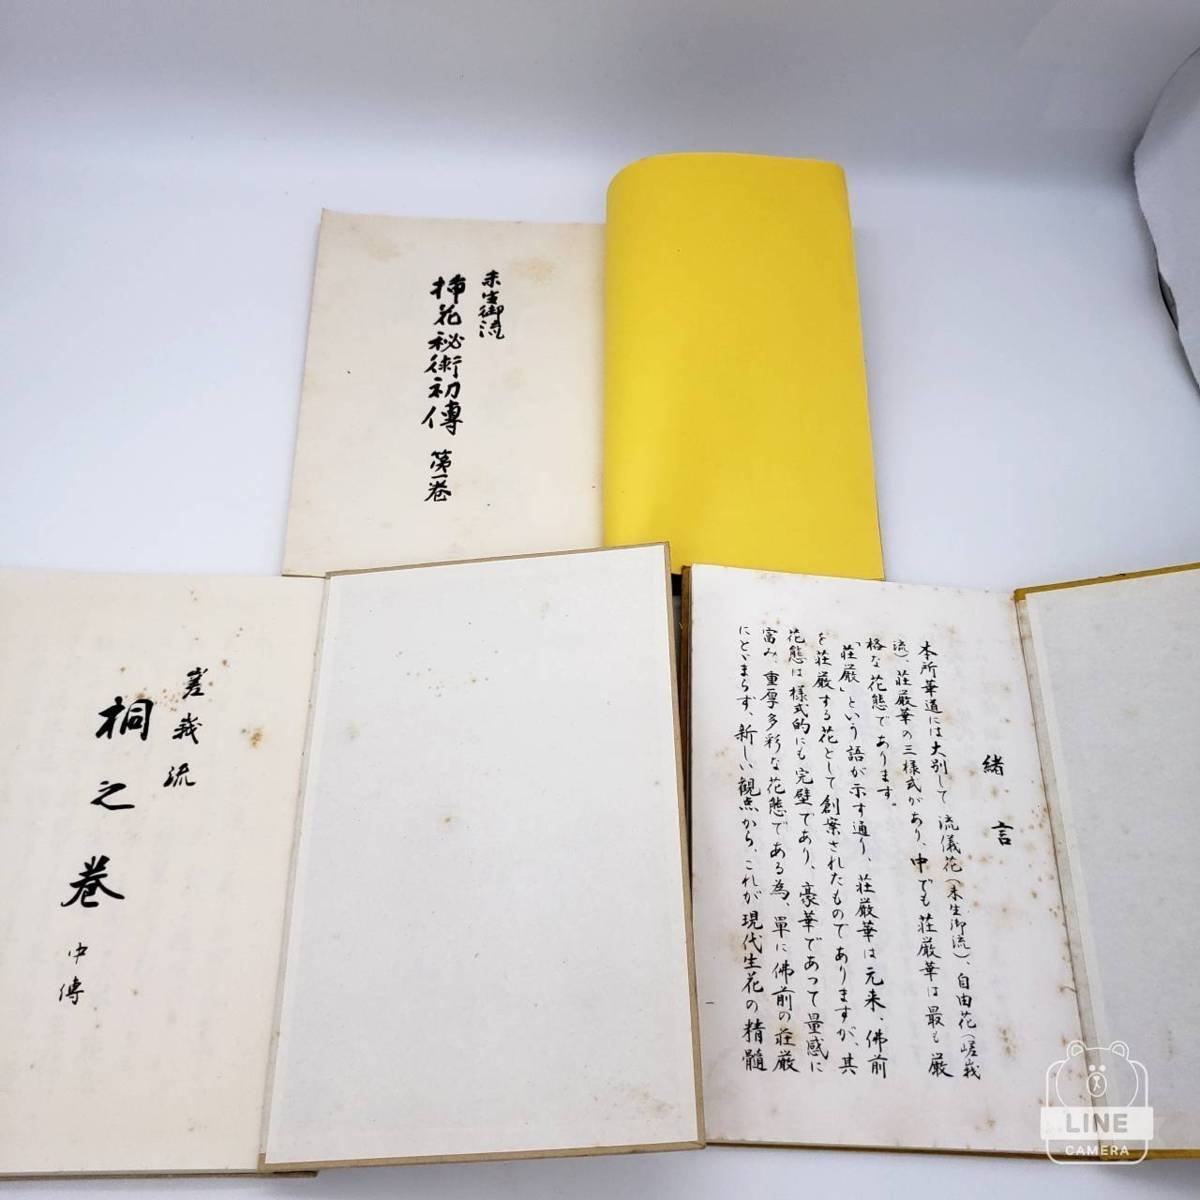 未生御流
挿花秘術初傳 第一巻
嵯峨流
桐之巻 中傳
緒言
本所華道には大別して流儀花(未生御流)、自由花(嵯峩
流)、荘厳華の三様式があり、中でも荘厳華は最も厳
格な花態であります。
「荘厳」という語が示す通り、荘厳華は元来、佛前
を荘厳する花として創案されたものでありますが、其
花態は様式的にも完璧であり、豪華であつて量感に
富み、重厚多彩な花態である為、單に佛前の荘厳
にとゞまらず、新しい観点から、これが現代生花の精髓
LINE
CAMERA